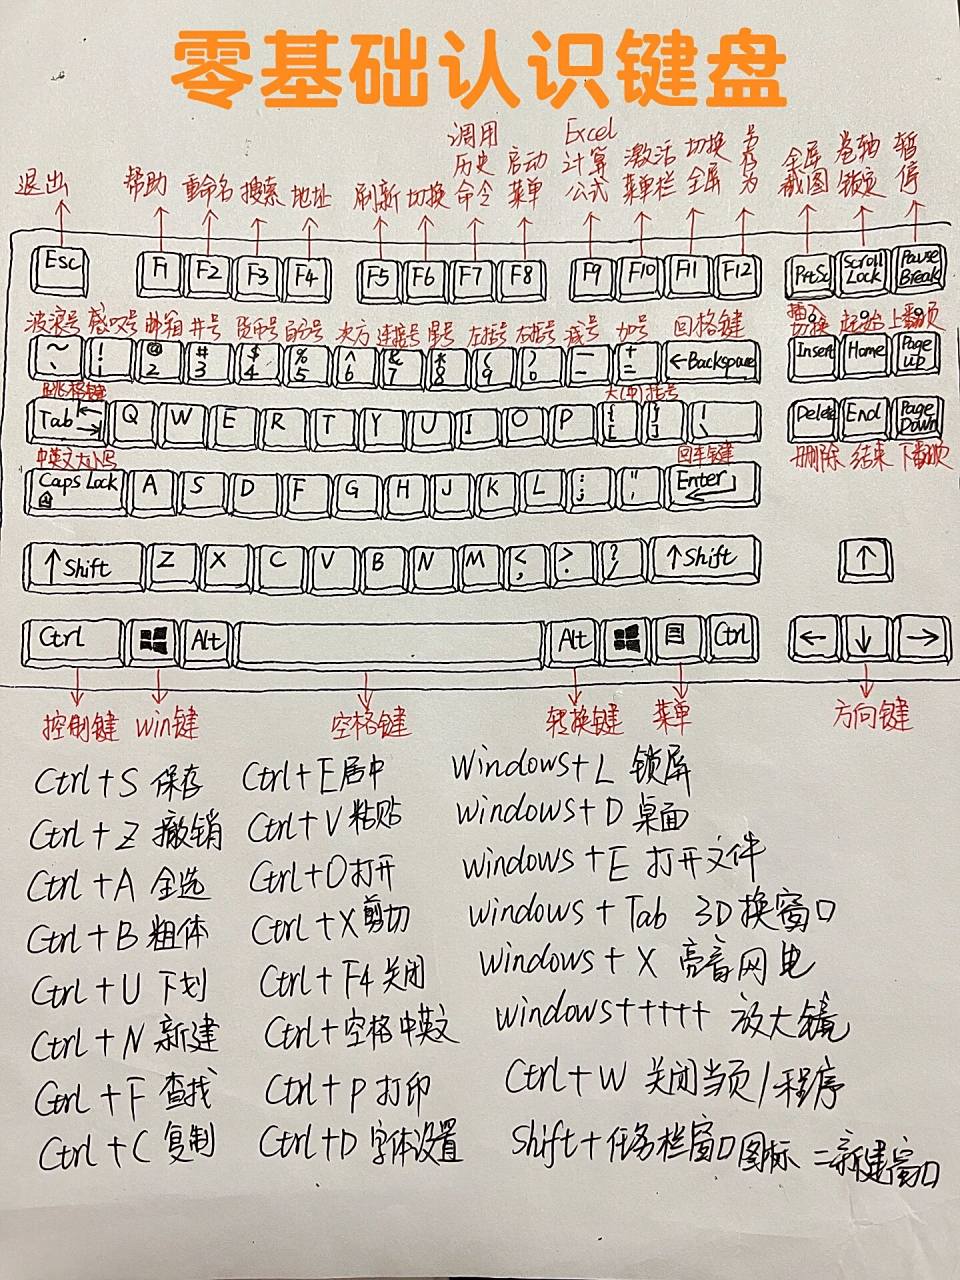 零基础认识键盘
退出 帮助 重命名 搜索 地址 刷新 切换 调用历史命令 启动菜单 Excel计算公式 激活菜单栏 切换全屏 另存为 全屏截图 卷轴锁定 暂停
Esc F1 F2 F3 F4 F5 F6 F7 F8 F9 F10 F11 F12 PrtSc Scroll Lock Pause Break
波浪号 感叹号 邮箱 井号 货币号 百分号 次方 连接号 星号 左括号 右括号 减号 加号 回格键 切换 起始 上翻页
~ 、 ! 1 @ 2 # 3 $ 4 % 5 ^ 6 & 7 * 8 ( 9 ) 0 — - + = ←Backspace Insert Home Page up
跳格键 大(中)括号
Tab Q W E R T Y U I O P { [ } ] | \ Delete End Page Down
中英文大小写 回车键 删除 结束 下翻页
Caps Lock A S D F G H J K L : ; " ' Enter
↑Shift Z X C V B N M < , > . ? / ↑Shift ↑
Ctrl Alt Alt Ctrl ← ↓ →
控制键 win键 空格键 转换键 菜单 方向键
Ctrl+S 保存 Ctrl+E居中 Windows+L 锁屏
Ctrl+Z 撤销 Ctrl+V粘贴 windows+D 桌面
Ctrl+A 全选 Ctrl+O打开 windows+E 打开文件
Ctrl+B 粗体 Ctrl+X剪切 windows+Tab 3D换窗口
Ctrl+U 下划 Ctrl+F4关闭 windows+X 亮音网电
Ctrl+N 新建 Ctrl+空格中英文 windows+++++ 放大镜
Ctrl+F 查找 Ctrl+P打印 Ctrl+W 关闭当页/程序
Ctrl+C 复制 Ctrl+D 字体设置 Shift+任务栏窗口图标=新建窗口